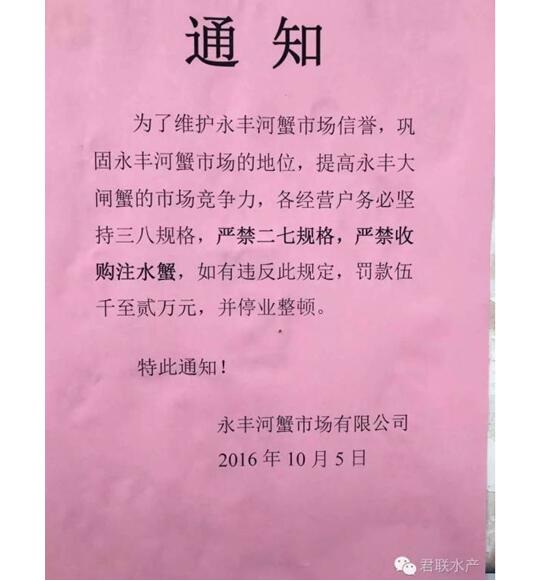 通知
为了维护永丰河蟹市场信誉，巩
固永丰河蟹市场的地位，提高永丰大
闸蟹的市场竞争力，各经营户务必坚
持三八规格，严禁二七规格，严禁收
购注水蟹，如有违反此规定，罚款伍
千至贰万元，并停业整顿。
特此通知！
永丰河蟹市场有限公司
2016年10月5日
君联水产